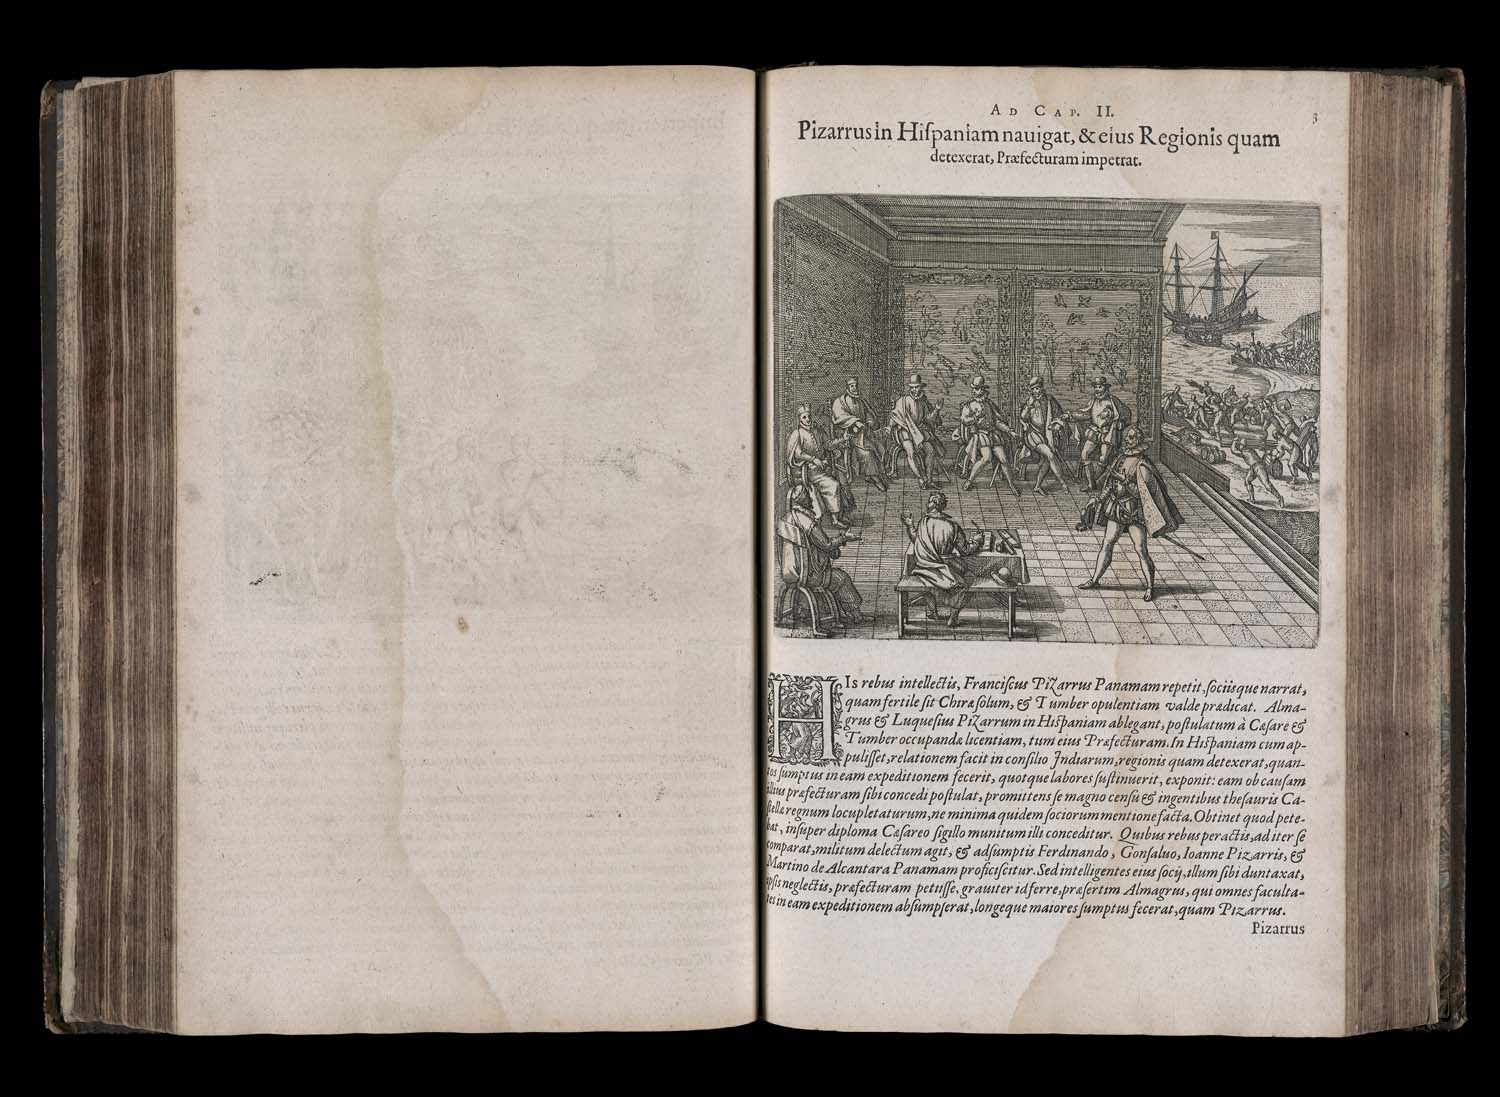 AD CAP. II.
3
Pizarrus in Hiſpaniam nauigat, & eius Regionis quam
detexerat, Præfecturam impetrat.
HIs rebus intellectis, Franciſcus Pizarrus Panamam repetit, ſociisque narrat,
quam fertile ſit Chiræ ſolum, & Tumber opulentiam valde prædicat. Alma-
grus & Luqueſius Pizarrum in Hiſpaniam ablegant, poſtulatum à Cæſare &
Tumber occupandæ licentiam, tum eius Præfecturam. In Hiſpaniam cum ap-
puliſſet, relationem facit in conſilio Indiarum, regionis quam detexerat, quan-
tos ſumptus in eam expeditionem fecerit, quotque labores ſuſtinuerit, exponit: eam ob cauſam
illius præfecturam ſibi concedi poſtulat, promittens ſe magno cenſu & ingentibus theſauris Ca-
ſtellæ regnum locupletaturum, ne minima quidem ſociorum mentione facta. Obtinet quod pete-
bat, inſuper diploma Cæſareo ſigillo munitum illi conceditur. Quibus rebus peractis, ad iter ſe
comparat, militum delectum agit, & adſumptis Ferdinando, Gonſaluo, Ioanne Pizarris, &
Martino de Alcantara Panamam proficiſcitur. Sed intelligentes eius ſocij, illum ſibi duntaxat,
ipſis neglectis, præfecturam petiiſſe, grauiter id ferre, præſertim Almagrus, qui omnes faculta-
tes in eam expeditionem abſumpſerat, longeque maiores ſumptus fecerat, quam Pizarrus.
Pizarrus